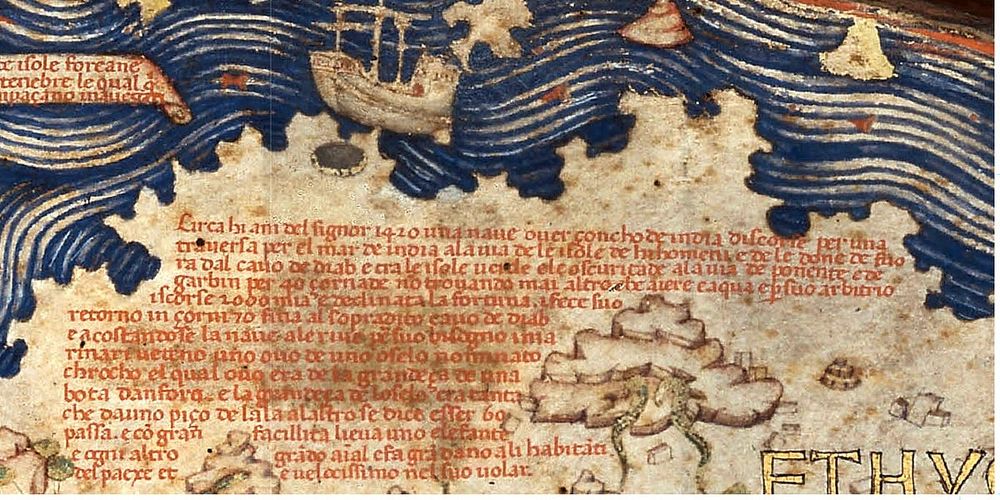 ce isole foreane
tenebre le qual
navegano
Circa hi ani del signor 1420 una naue ouer çoncho de india discorse per una
trauersa per el mar de india a la uia de le isole de hi homeni e de le done de fuo
ra dal cauo de diab e tra le isole uerde e le oscuritade a la uia de ponente e de
garbin per 40 çornade no trouando mai altro che aiere e aqua e p suo arbitrio
iscorse 2000 mia e declinata la fortuna i fece suo
retorno in çorni 70 fina al sopradito cauo de diab
e acostandose la naue a le riue p suo bisogno i ma
rinari ueteno uno ouo de uno oselo nominato
chrocho el qual ouo era de la grandeça de una
bota d'anfora e la grandeça de l'oselo era tanta
che da uno piço de l'ala a l'altro se dice esser 60
passa e cõ gran facillita lieua uno elefante
e ogni altro grãdo aial e fa gra dano a li habitãti
del paexe et e uelocissimo nel suo uolar.
ETHYO